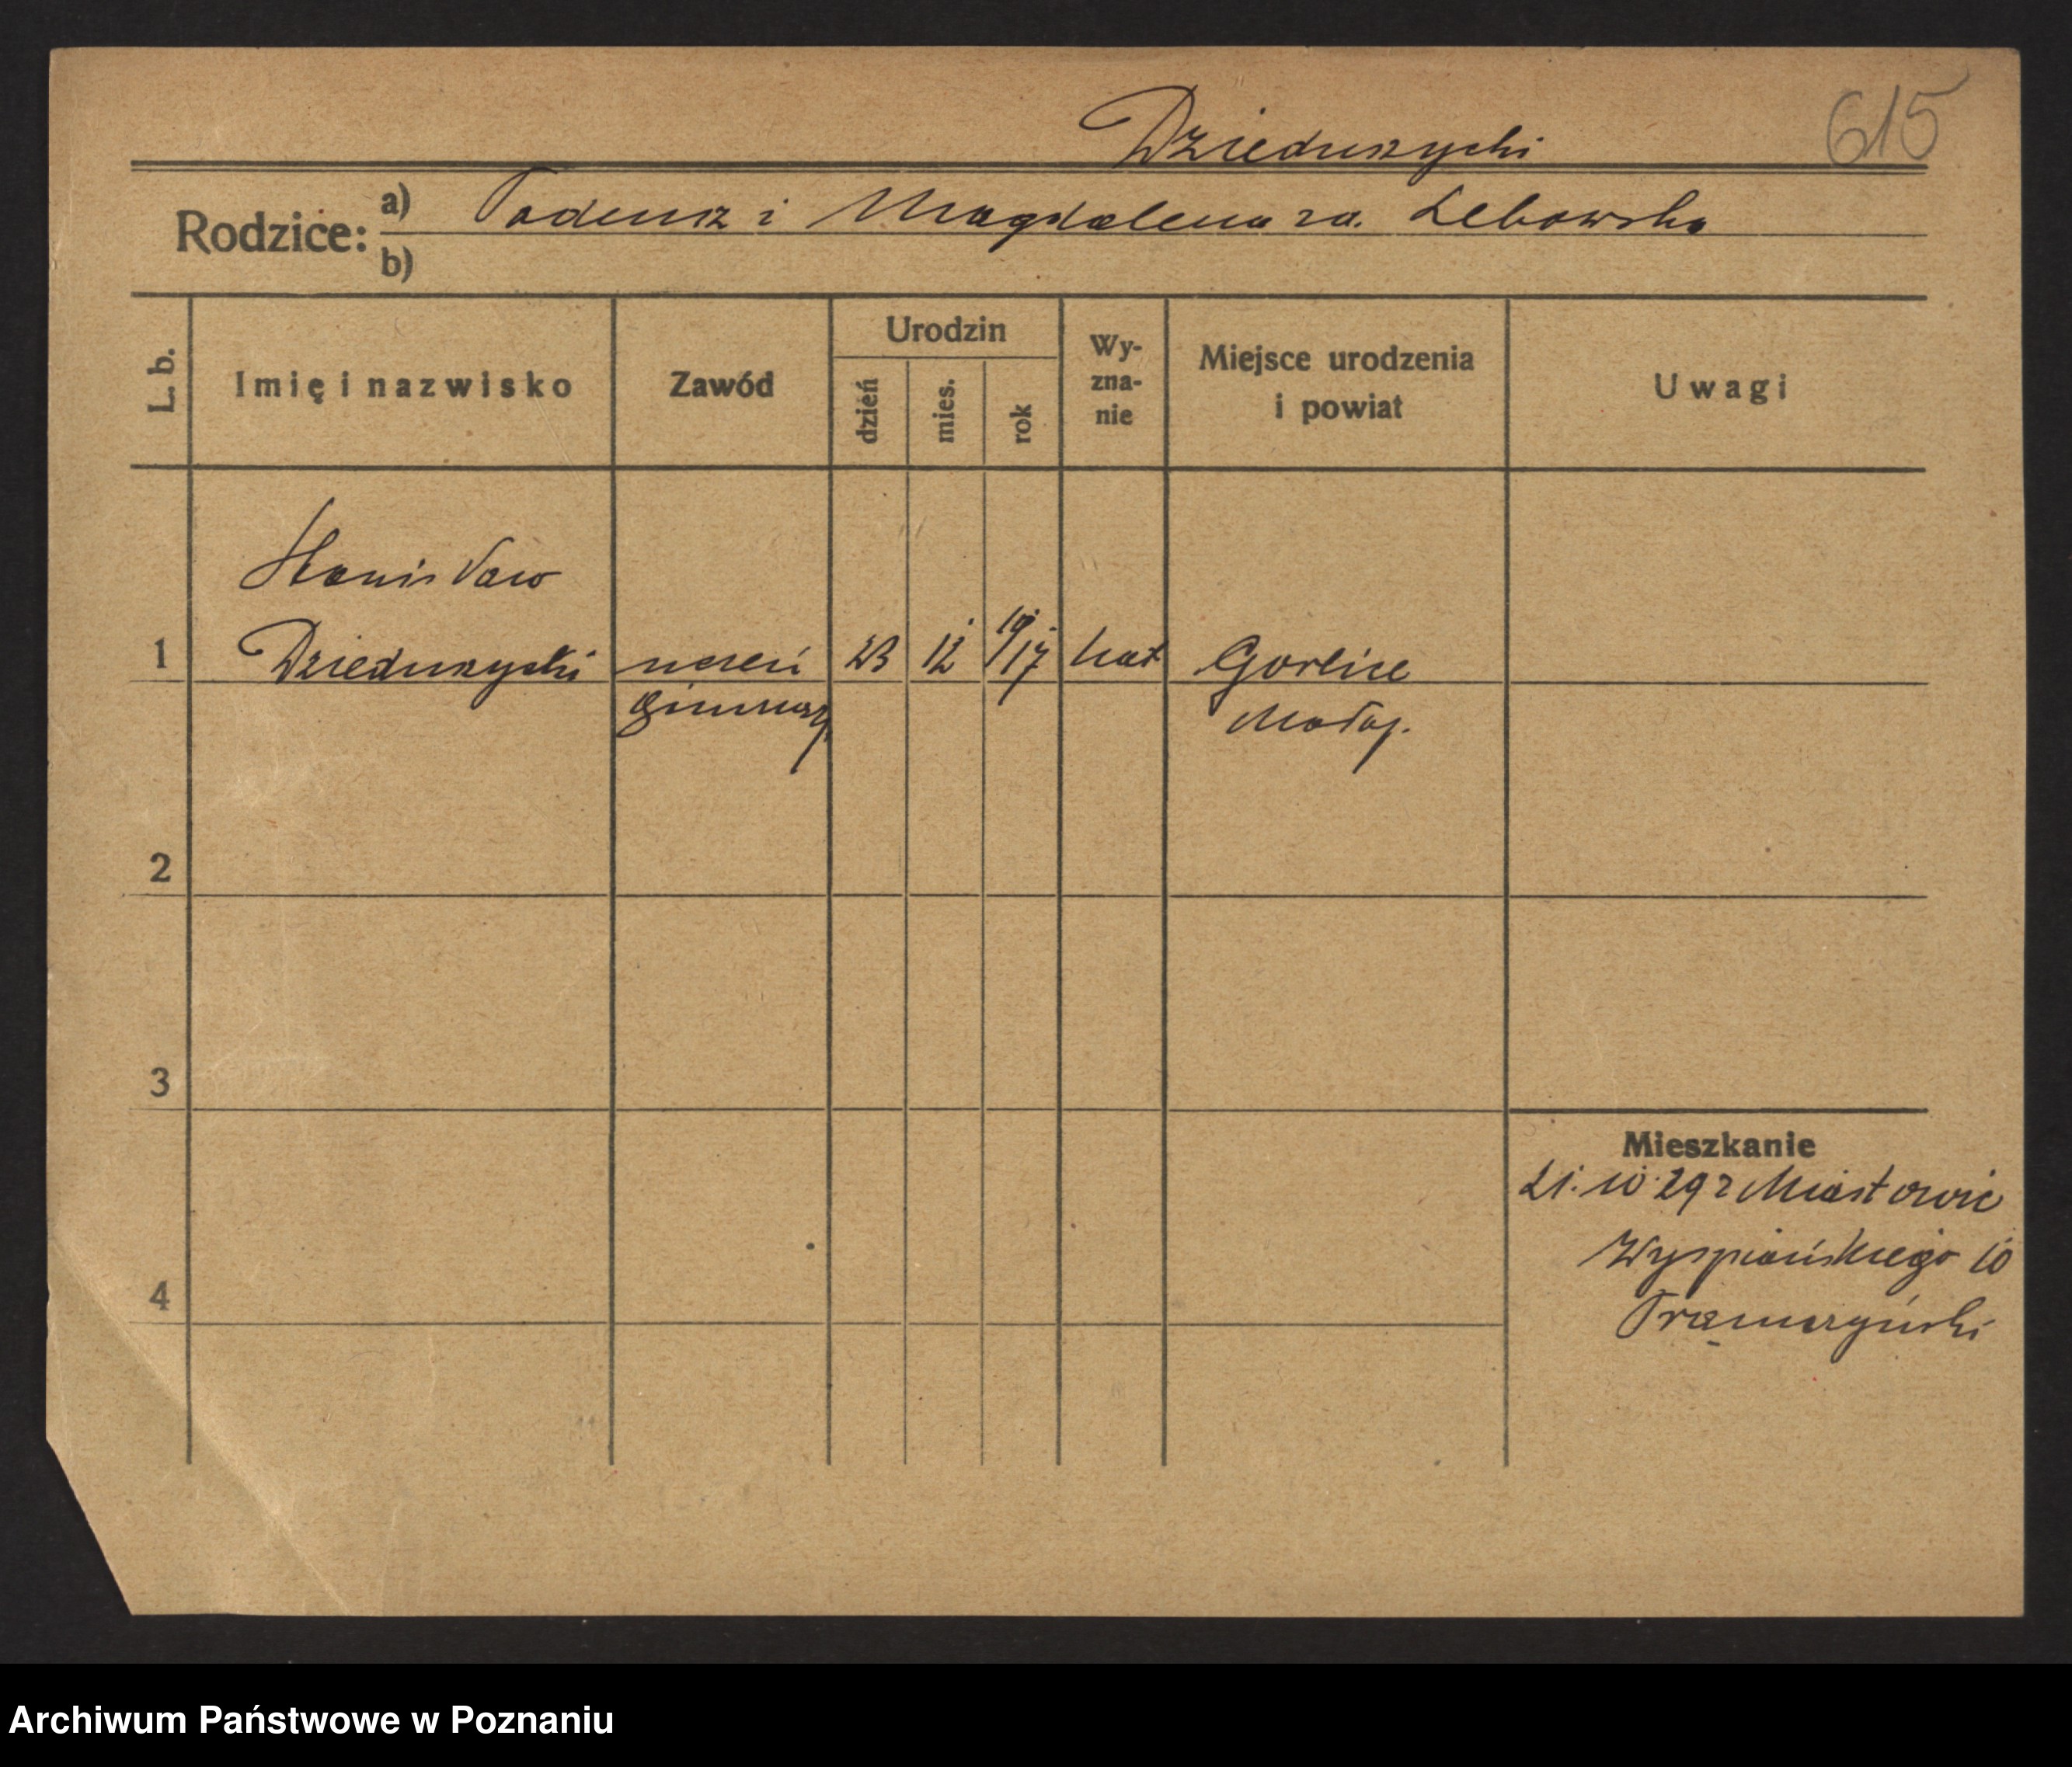 615
Dzieduszycki
Rodzice: a) Tadeusz i Magdalena za. Lebowska
b)
L. b. Imię i nazwisko Zawód Urodzin dzień mies. rok Wy-zna-nie Miejsce urodzenia i powiat Uwagi
Stanisław
1 Dzieduszycki uczeń 23 12 19/17 kat Gorlice
gimnazj. Małop.
2
3
Mieszkanie
21. 10. 29 z Miastowic
Wyspiańskiego 10
4
Trąmczyński
Archiwum Państwowe w Poznaniu